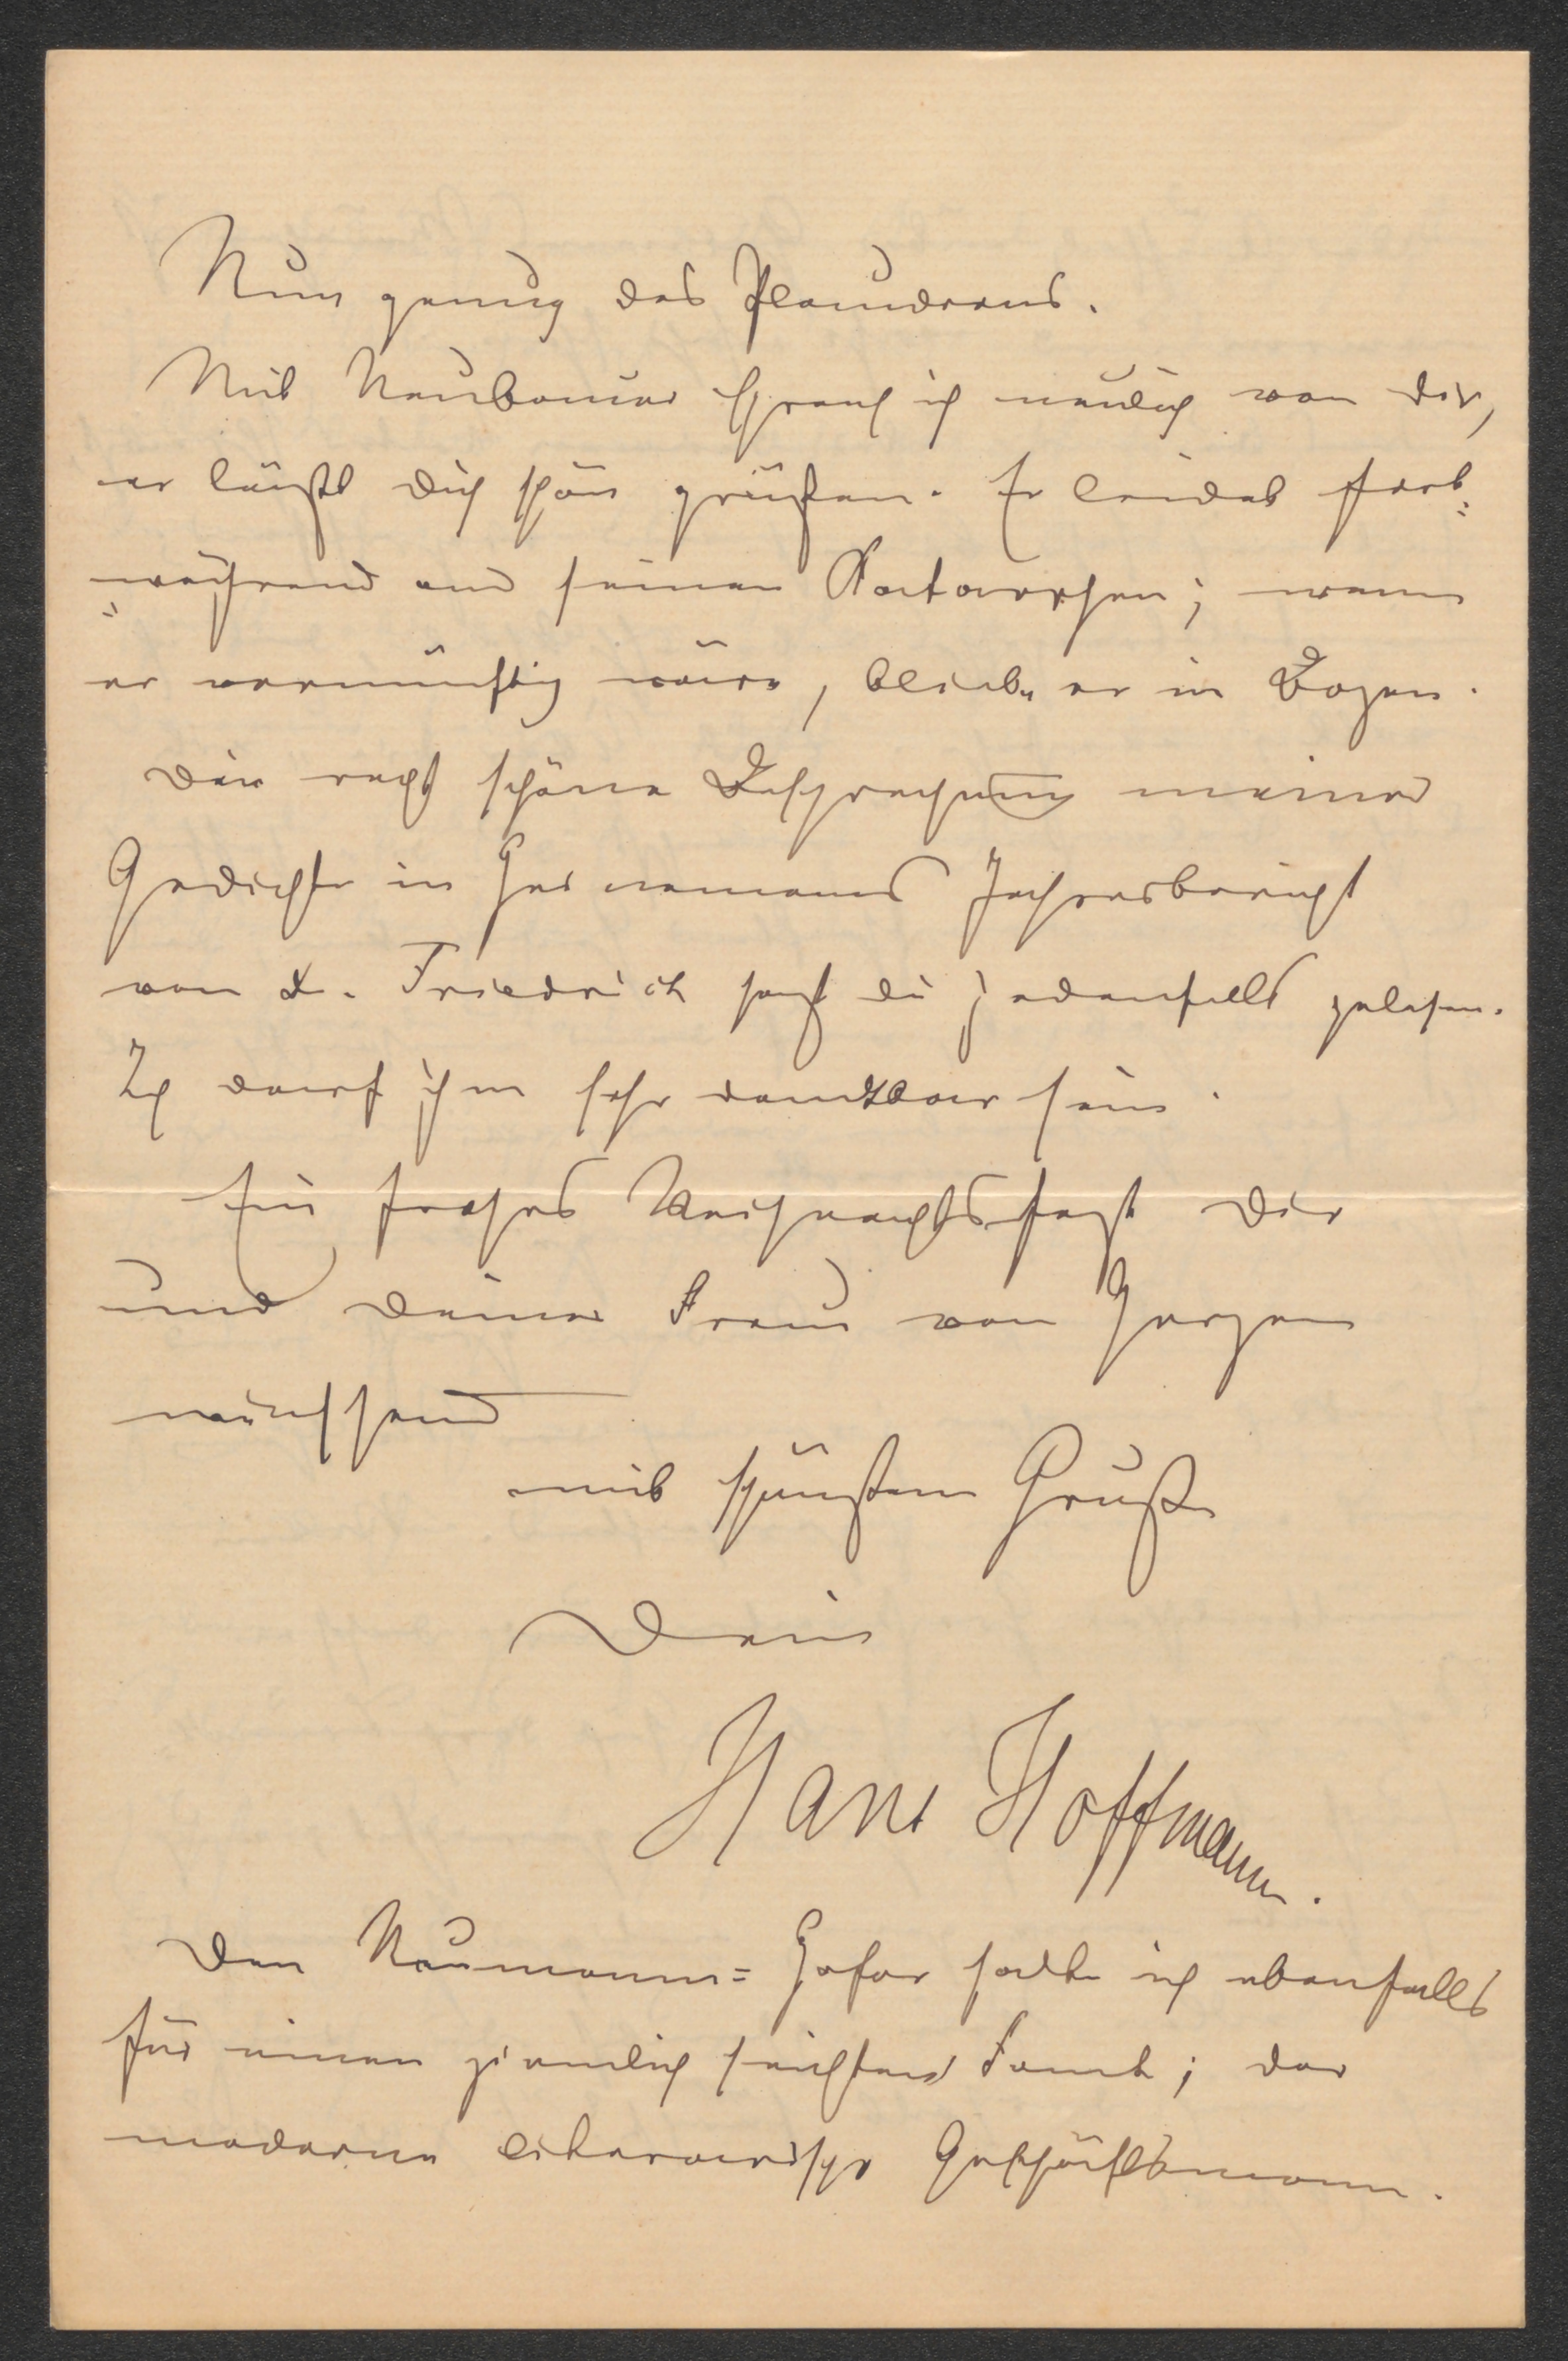 Nun genug des Plauderns.
Mit Neubauer sprach ich neulich von dir,
er läßt dich schön grüßen. Er leidet fort-
während an seinen Katarrhen; wenn
er vernünftig wäre, bliebe er in Bozen.
Die recht schöne Besprechung meiner
Gedichte in Jahresbericht
von Friedrich hast du jedenfalls gelesen.
Ich darf ihm sehr dankbar sein.
Ein frohes Weihnachtsfest dir
und deiner Frau von Herzen
wünschend
mit schönstem Gruße
Dein
Hans Hoffmann.
Den Naumann-Hofer halte ich ebenfalls
für einen ziemlich seichten; der
moderne literarische Geschäftsmann.